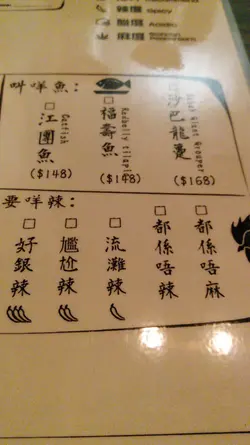 Spicy
Acidic
叫咩魚:
江團魚
Catfish
($148)
福壽魚
Redbelly tilapia
($148)
沙巴龍躉
Giant Grouper
($168)
要咩辣:
好銀辣
尷尬辣
流灘辣
都係唔辣
都係唔麻